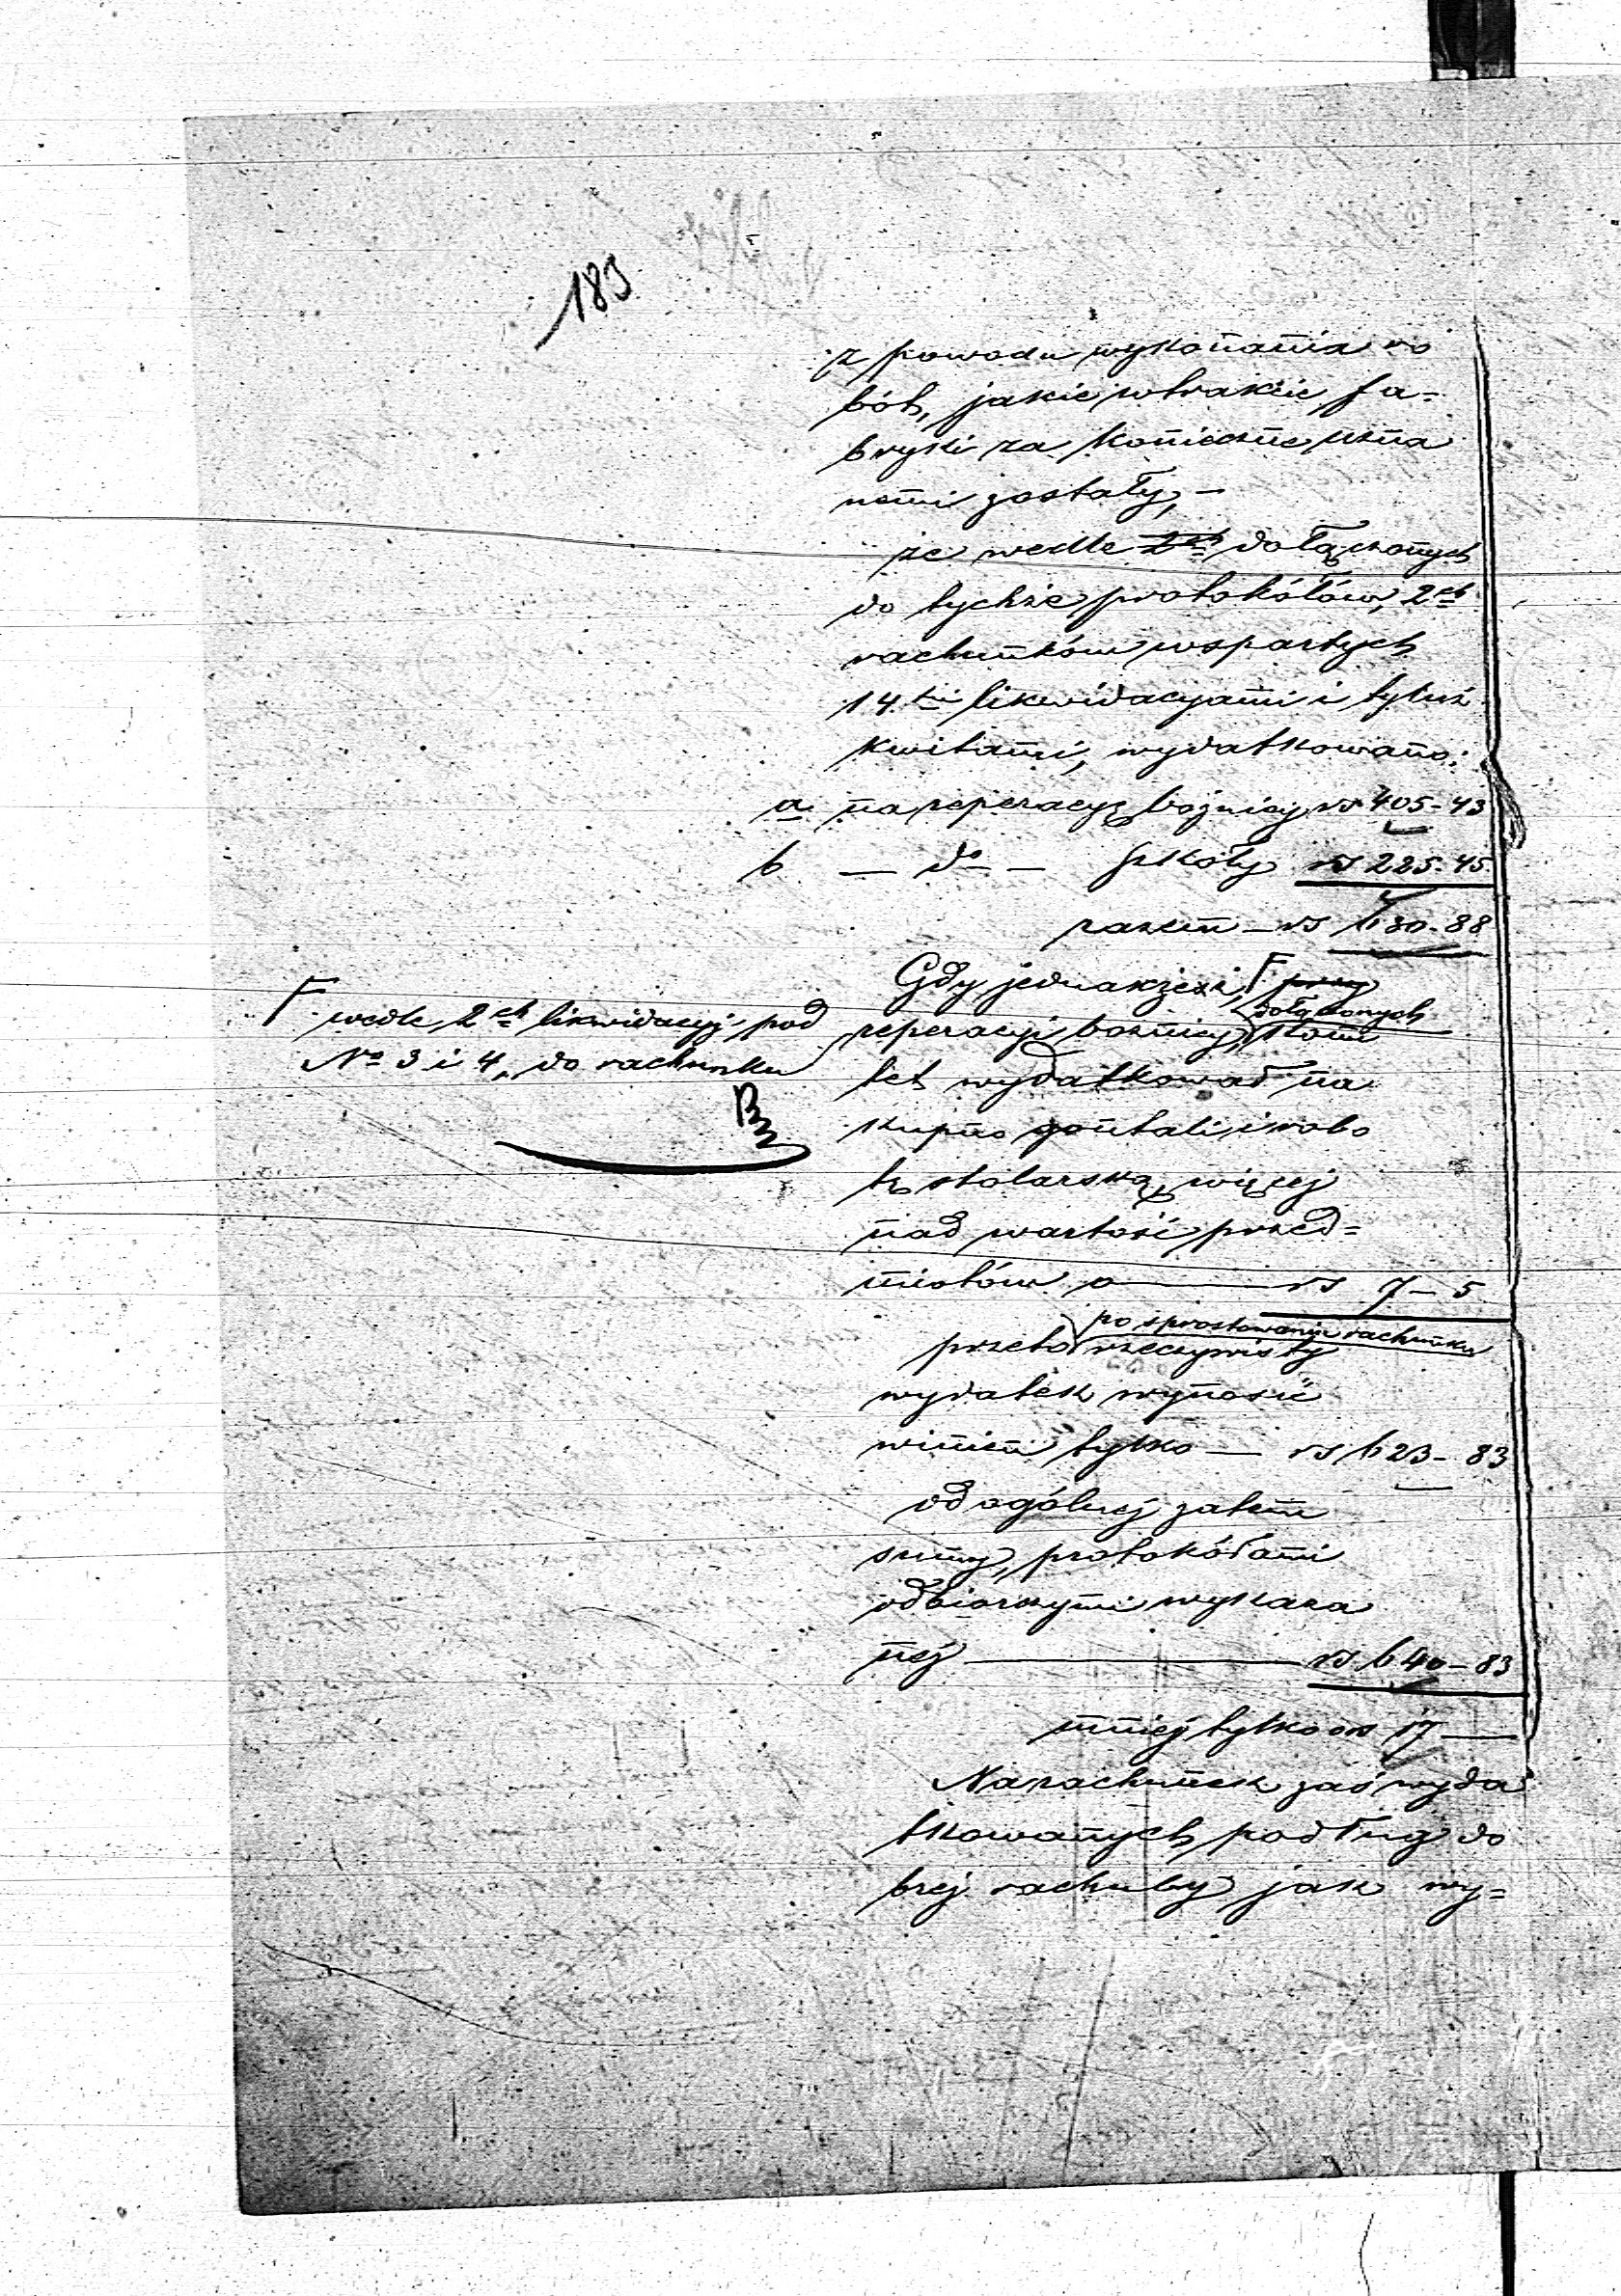 183
z powodu wykonania ro
bót, jakie w trakcie fa=
bryki za konieczne uzna
nemi zostały, —
że wedle 2ch dołączonych
do tychże protokółów, 2ch
rachunków wspartych
14tu likwidacyami i tyluż
kwitami, wydatkowano:
a. na reperacyę bożnicy rs 405 - 43
b — do — szkoły rs 225 - 45
razem — rs 630 - 88
Gdy jednakże i F przy
dołączonych
reperacyi bożnicy, Komi
tet wydatkował na
kupno gontali i robo
tę stolarską, więcej
nad wartość przed=
miotów o — rs 7 - 5
po sprostowaniu rachunku
przeto rzeczywisty
wydatek wynosić
winien tylko — rs 623 - 83
od ogólnej zatem
sumy, protokółami
odbiorczymi wykaza
nej — rs. 640 - 83
mniej tylko o rs 17 —
Na rachunek zaś wyda
tkowanych podług do
brej rachuby jak wy=
F wedle 2ch likwidacyj, pod
No 3 i 4, do rachunku